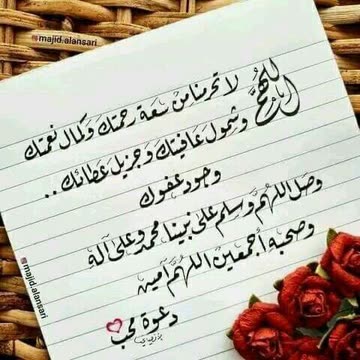 majid.alansari
اللهم لا تحرمنا من سعة رحمتك وكمال نعمتك
وشمول عافيتك وجزيل عطائك ..
وجود عفوك
وصل اللهم وسلم على نبينا محمد وعلى آله
وصحبه أجمعين اللهم آمين
دعوة محب
majid.alansari